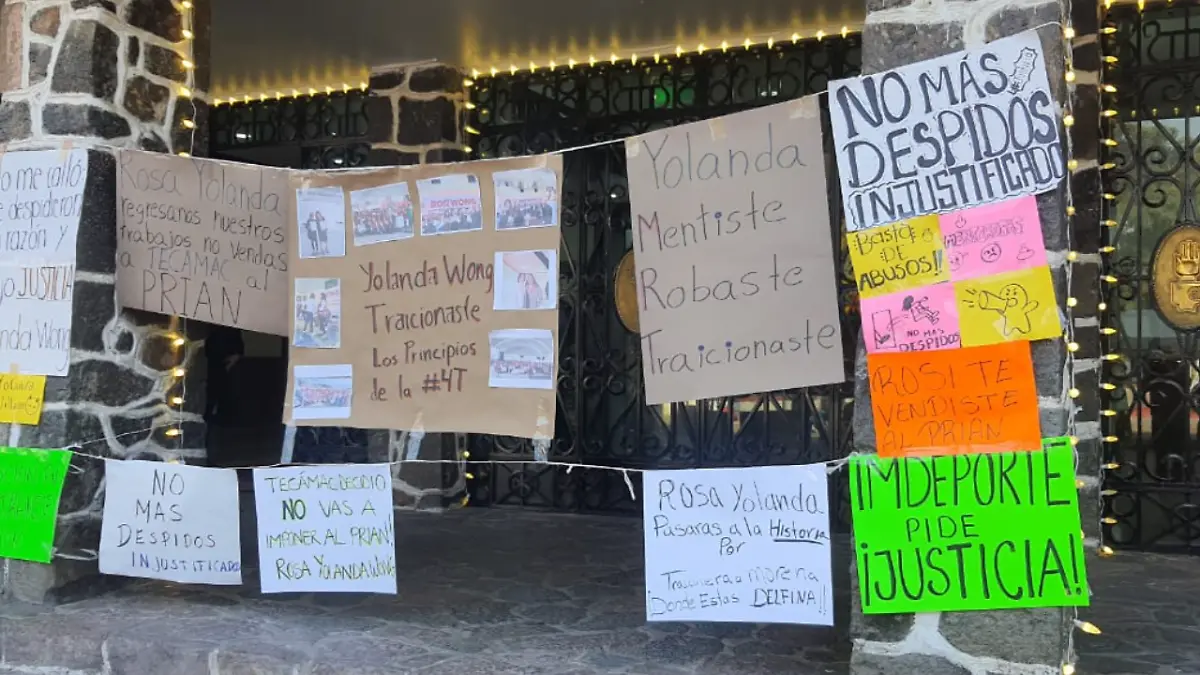 o me calló
e despidieron
razón y
JUSTICIA
nda Wong
Rosa Yolanda
regresanos nuestros
trabajos no vendas
a TECAMAC al
PRIAN
Yolanda Wong
Traicionaste
Los Principios
de la #4T
Yolanda
Mentiste
Robaste
Traicionaste
NO MÁS
DESPIDOS
INJUSTIFICADO
BASTA
DE
ABUSOS!!
NO MÁS
DESPIDOS
ROSI TE
VENDISTE
AL PRIAN
NO
MAS
DESPIDOS
INJUSTIFICADO
TECÁMAC DECIDIO
NO VAS A
IMPONER AL PRIAN!
ROSA YOLANDA WONG
Rosa Yolanda
Pasaras a la Historia
Por
Traicionera a morena
¡Donde Estas DELFINA!!
IMDEPORTE
PIDE
¡JUSTICIA!